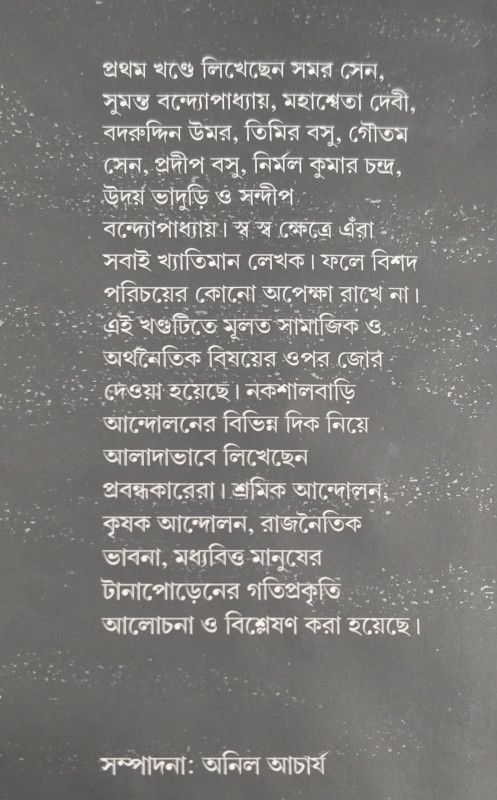 প্রথম খণ্ডে লিখেছেন সমর সেন,
সুমন্ত বন্দ্যোপাধ্যায়, মহাশ্বেতা দেবী,
বদরুদ্দিন উমর, তিমির বসু, গৌতম
সেন, প্রদীপ বসু, নির্মল কুমার চন্দ্র,
উদয় ভাদুড়ি ও সন্দীপ
বন্দ্যোপাধ্যায়। স্ব স্ব ক্ষেত্রে এঁরা
সবাই খ্যাতিমান লেখক। ফলে বিশদ
পরিচয়ের কোনো অপেক্ষা রাখে না।
এই খণ্ডটিতে মূলত সামাজিক ও
অর্থনৈতিক বিষয়ের ওপর জোর
দেওয়া হয়েছে। নকশালবাড়ি
আন্দোলনের বিভিন্ন দিক নিয়ে
আলাদাভাবে লিখেছেন
প্রবন্ধকারেরা। শ্রমিক আন্দোলন,
কৃষক আন্দোলন, রাজনৈতিক
ভাবনা, মধ্যবিত্ত মানুষের
টানাপোড়েনের গতিপ্রকৃতি
আলোচনা ও বিশ্লেষণ করা হয়েছে।
সম্পাদনা: অনিল আচার্য